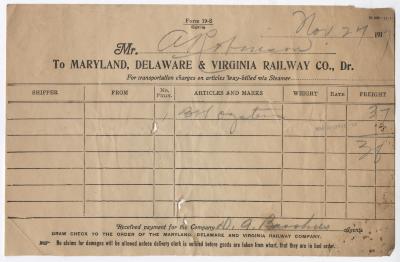 Form 19-S
Nov 27 191
Mr. A Robinson
To MARYLAND, DELAWARE & VIRGINIA RAILWAY CO., Dr.
For transportation charges on articles way-billed via Steamer
SHIPPER FROM No. PKGS. ARTICLES AND MARKS WEIGHT RATE FREIGHT
1 Bbl oysters 37
38
Received payment for the Company Agents
DRAW CHECK TO THE ORDER OF THE MARYLAND, DELAWARE, AND VIRGINIA RAILWAY COMPANY.
No claims for damages will be allowed unless delivery clerk is notified before goods are taken from wharf, that they are in bad order.